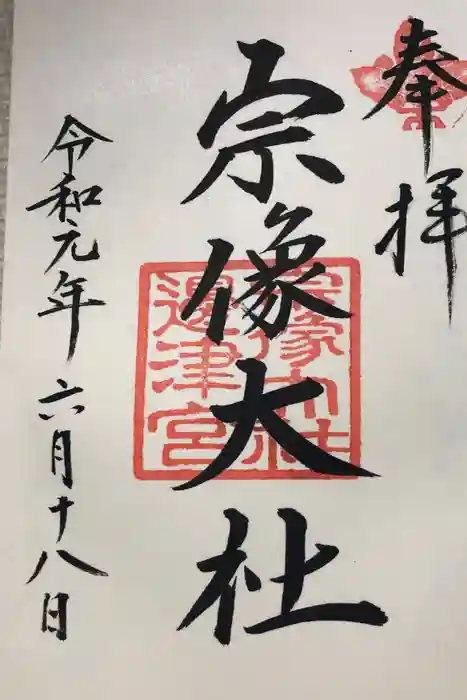 奉拝
宗像大社
宗像大社
邊津宮
令和元年六月十八日